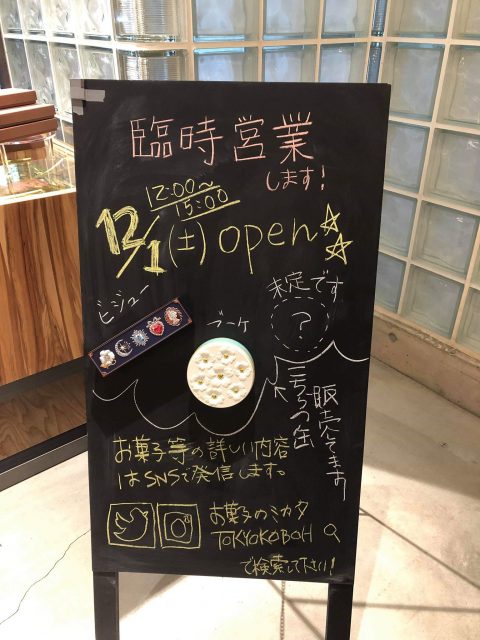 臨時営業
します!
12:00~
15:00
12/1(土)open
未定です
?
ビジュー
ブーケ
販売してます
お菓子等の詳しい内容
はSNSで発信します。
お菓子のミカタ
TOKYOKOBOH
で検索して下さい!